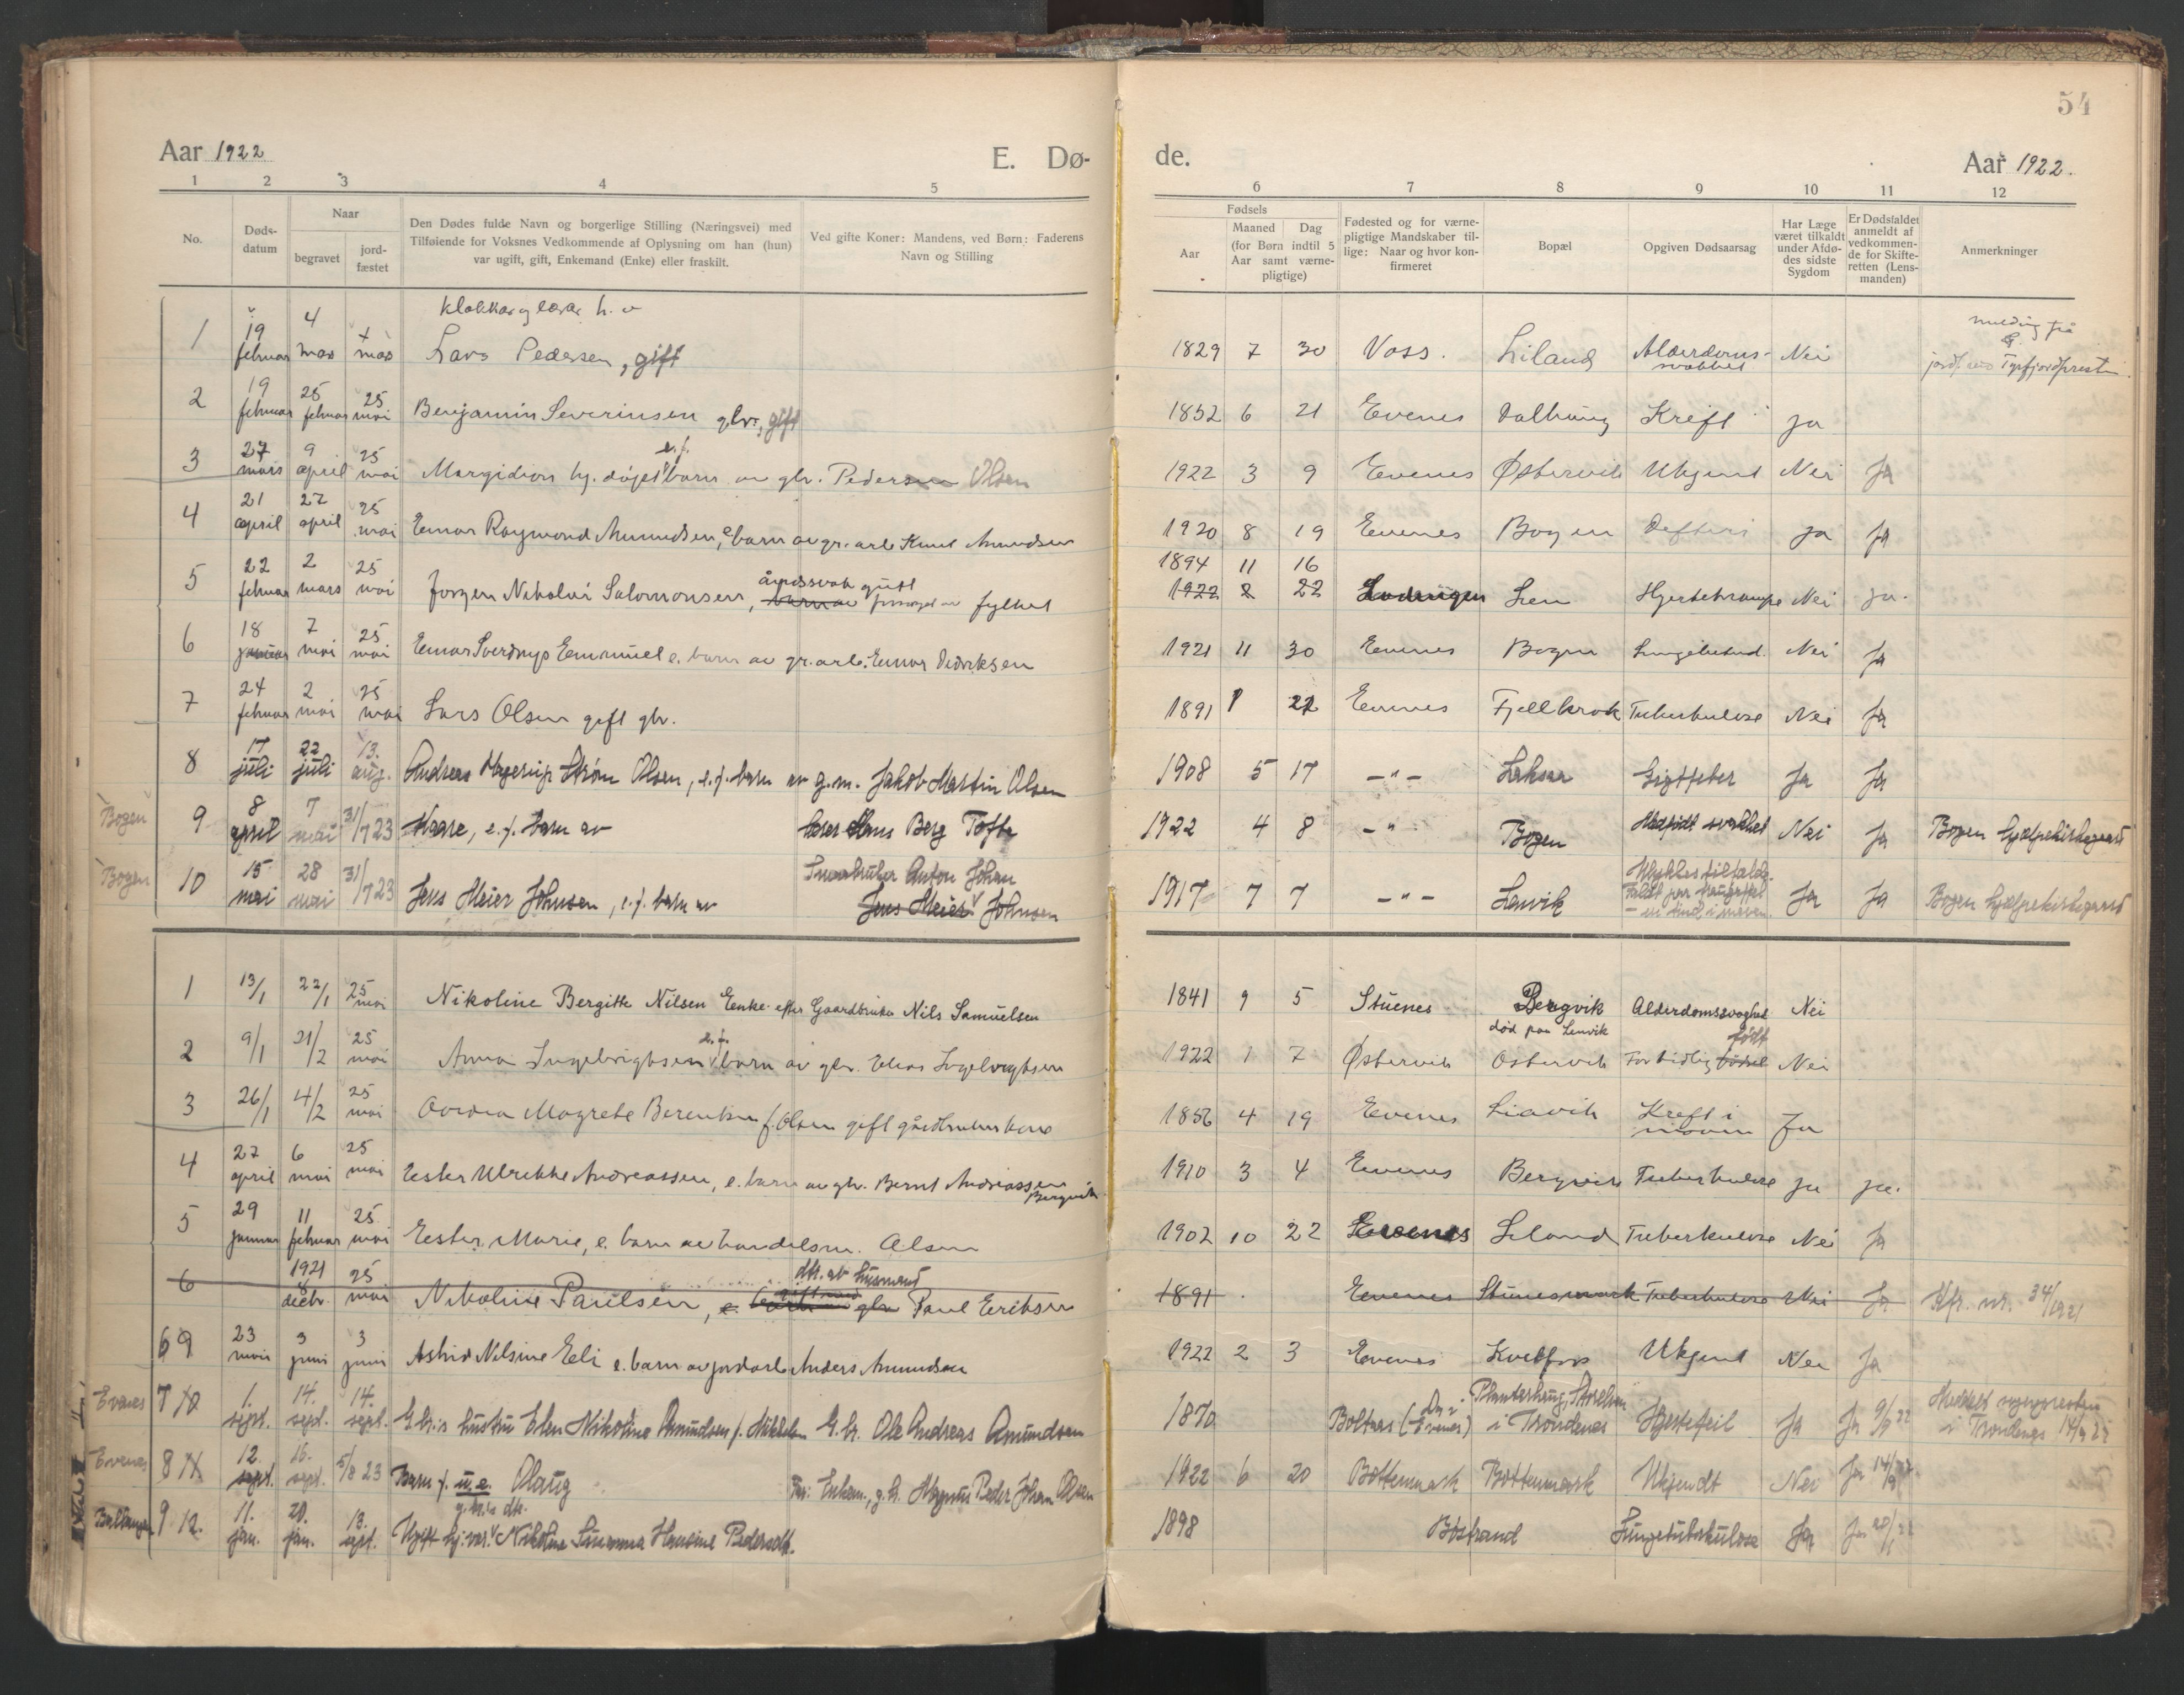 54
Aar 1922
E. Dø-
de.
Aar 1922.
1 2 3 4 5
6 7 8 9 10 11 12
No.
Døds-
datum
Naar
begravet
jord-
fæstet
Den Dødes fulde Navn og borgerlige Stilling (Næringsvei) med
Tilføiende for Voksnes Vedkommende af Oplysning om han (hun)
var ugift, gift, Enkemand (Enke) eller fraskilt.
Ved gifte Koner: Mandens, ved Børn: Faderens
Navn og Stilling
Fødsels
Aar
Maaned Dag
(for Børn indtil 5
Aar samt værne-
pligtige)
Fødested og for værne-
pligtige Mandskaber til-
lige: Naar og hvor kon-
firmeret
Bopæl
Opgiven Dødsaarsag
Har Læge
været tilkaldt
under Afdø-
des sidste
Sygdom
Er Dødsfaldet
anmeldt af
vedkommen-
de for Skifte-
retten (Lens-
manden)
Anmerkninger
1 19 februar 4 mars mars Lars Pedersen, gift 1829 7 30 Voss. Liland Alderdoms- Nei
2 19 februar 25 februar 25 mai Benjamin Severinsen gbr., gift 1852 6 21 Evenes Kreft ja
3 27 mars 9 april 25 mai hj. døpt e.f. barn av gbr. Pedersen Olsen 1922 3 9 Evenes Østervik Ukjent Nei Ja
4 21 april 27 april 25 mai Einar Raymond Amundsen, e. barn av gr. arb. Knut Amundsen 1920 8 19 Evenes Bogen Difteri Ja Ja
5 22 februar 2 mars 25 mai Jørgen Nikolai Salomonsen, åndssvak gutt barn av fylket 1894 11 16 1922 2 22 Lødingen Hjertekrampe Nei ja.
6 18 januar 7 mai 25 mai Einar Sverdrup Emanuel e. barn av gr. arb. Einar Didriksen 1921 11 30 Evenes Bogen Lungebetend. Nei Ja
7 24 februar 2 mai 25 mai Lars Olsen gift gbr. 1891 1 22 Evenes Fjellkrok Tuberkulose Nei Ja
8 17 juli 22 juli 13. aug. Andreas Hagerup Strøm Olsen, e.f. barn av g.m. Jakob Martin Olsen 1908 5 17 —"— Laksaa Gigtfeber Ja Ja
Bogen 9 8 april 7 mai 31/7 23 Kaare, e.f. barn av Hans Berg Tofte 1922 4 8 —"— Bogen Medfødt svakhet Nei Ja Bogen hjælpekirkegaard
Bogen 10 15 mai 28 mai 31/7 23 Jens Meier Johnsen, e.f. barn av Anton Johan Jens Meier Johnsen 1917 7 7 —"— Lenvik Ja Ja Bogen hjælpekirkegaard
1 13/1 22/1 25 mai Nikoline Bergitte Nilsen Enke efter Gaardbruker Nils Samuelsen 1841 9 5 Stunes Bergvik død paa Lenvik Alderdomssvaghet Nei
2 9/1 21/2 25 mai Anna Ingebrigtsen e.f. barn av gbr. Elias Ingebrigtsen 1922 1 7 Østervik Østervik For tidlig fødsel født Nei
3 26/1 4/2 25 mai Magrete Berentsen f. Olsen gift gårdbrukerkone 1856 4 19 Evenes Liavik Kreft i maven Ja
4 27 april 6 mai 25 mai Ester Ulrikke Andreassen, e. barn av gbr. Bernt Andreassen Bergvik 1910 3 4 Evenes Bergvik Tuberkulose ja ja.
5 29 januar 11 februar 25 mai Ester Marie, e. barn av handelsm. Olsen 1902 10 22 Evenes Liland Tuberkulose Nei Ja
6 1921 8 decbr. 25 mai Nikoline Paulsen, e. dtr. av husmand gbr Paul Eriksen 1891 Evenes Stunesmark Tuberkulose Nei Ja Kfr. nr. 34/1921
6 9 23 mai 3 juni 3 juni Astrid Nilsine Eli e. barn av jordarb. Anders Amundsen 1922 2 3 Evenes Kvitfors Ukjent Nei Ja
Evenes 7 10 1. sept. 14. sept. 14. sept. G.br.s hustru Elen Nikoline Amundsen f. Mikkelsen G.br. Ole Andreas Amundsen 1870 Boltaas (Evenes) i Trondenes Hjertefeil Ja Ja 9/9 22 Meddelt sognepresten i Trondenes 14/9 22
Evenes 8 11 12. sept. 16. sept. 5/8 23 Barn f. u.e. Olaug Far: Enkem., g.br. Magnus Peder Johan Olsen 1922 6 20 Bottenmark Bottenmark Ukjendt Nei Ja 14/9
Ballangen 9 12. 11. jan. 20. jan. 13. sept. Ugift hj.vær. g.br.s dtr. Nikoline Susanna Hansine Pedersdtr. 1898 Bøstrand Lungetuberkulose Ja Ja 20/1 22